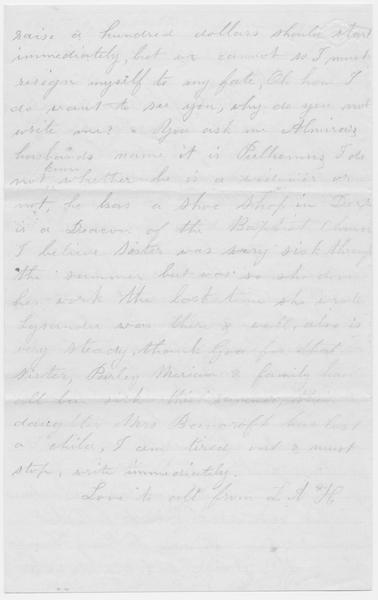 raise a hundred dollars should start
immediately, but we cannot so I must
resign myself to my fate, Oh how I
do want to see you, why do you not
write me? You ask me Almiras
husbands name it is I do
not know whether he is a widower or
not, he has a shoe shop in
is a Deacon of the Baptist Church
I believe Sister was very sick through
the summer but was so she done
her work the last time she wrote
Lysander was there & well, also is
very steady, thank God for that
Sister, Meriam & family have
all been sick this summer,
daughter Mrs Bancroft has lost
a child, I am tired out & must
stop, write immediately.
Love to all from L A H